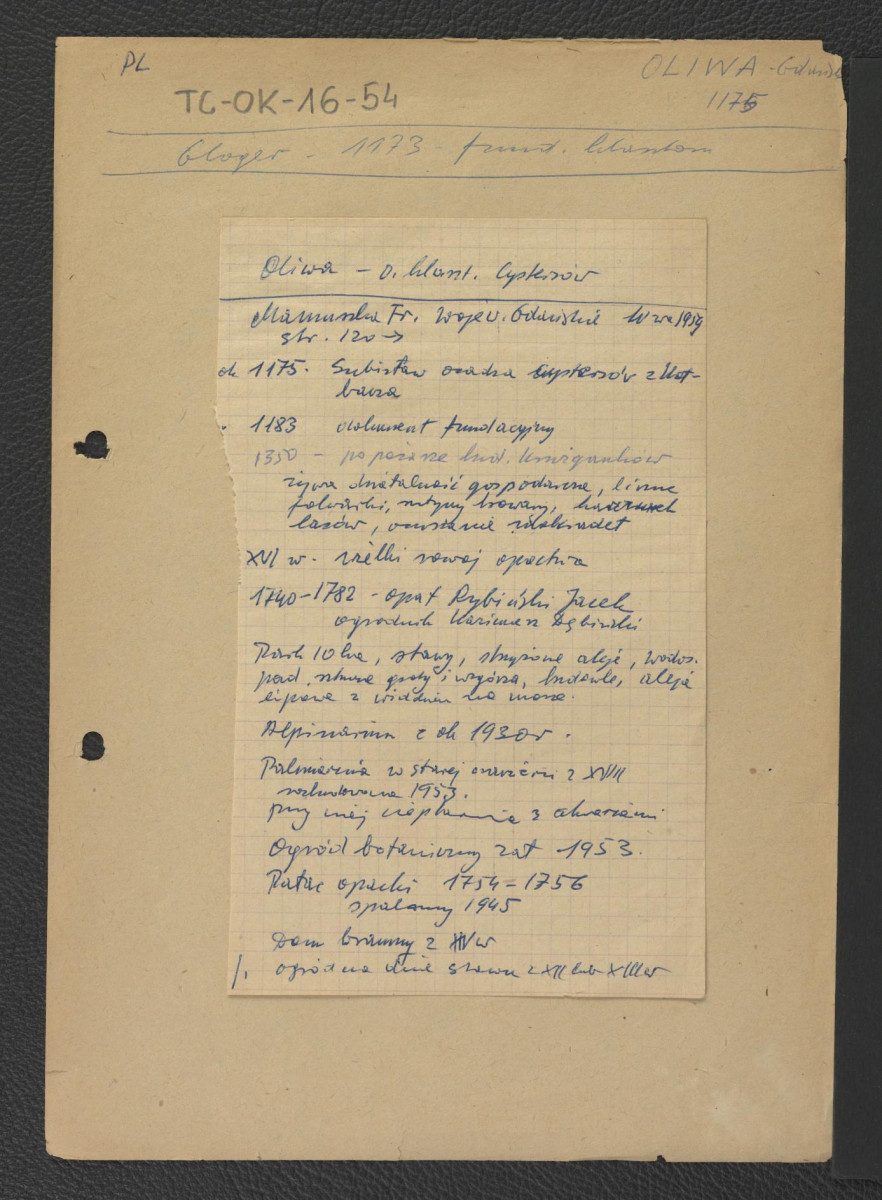 PL
OLIWA - Gdańsk
TC-OK-16-54
1175
Gloger - 1173 - fund. klasztoru
Oliwa - o. klaszt. Cystersów
Mamuszka Fr. Wojew. Gdańskie W-wa 1959
str. 120 →
ok 1175. Subisław osadza cystersów z Koł-
bacza
1183 dokument fundacyjny
1350 - po pożarze bud. krużganków
żywa działalność gospodarcza, liczne
folwarki, młyny browary,
lasów,
XVI w. wielki rozwój opactwa
1740-1782 - opat Rybiński Jacek
ogrodnik Kazimierz Dębiński
Park 10 ha, stawy, strzyżone aleje, wodos-
pad, sztuczne groty i wzgórza, budowle, aleja
lipowa z widokiem na morze.
Alpinarium z ok 1930 r.
Palmiarnia w starej oranżerii z XVIII
rozbudowana 1953.
przy niej cieplarnia z akwariami
Ogród botaniczny zał 1953.
Pałac opacki 1754-1756
spalony 1945
Dom bramny z XV w
/. ogród na dnie stawu z XII lub XIII w